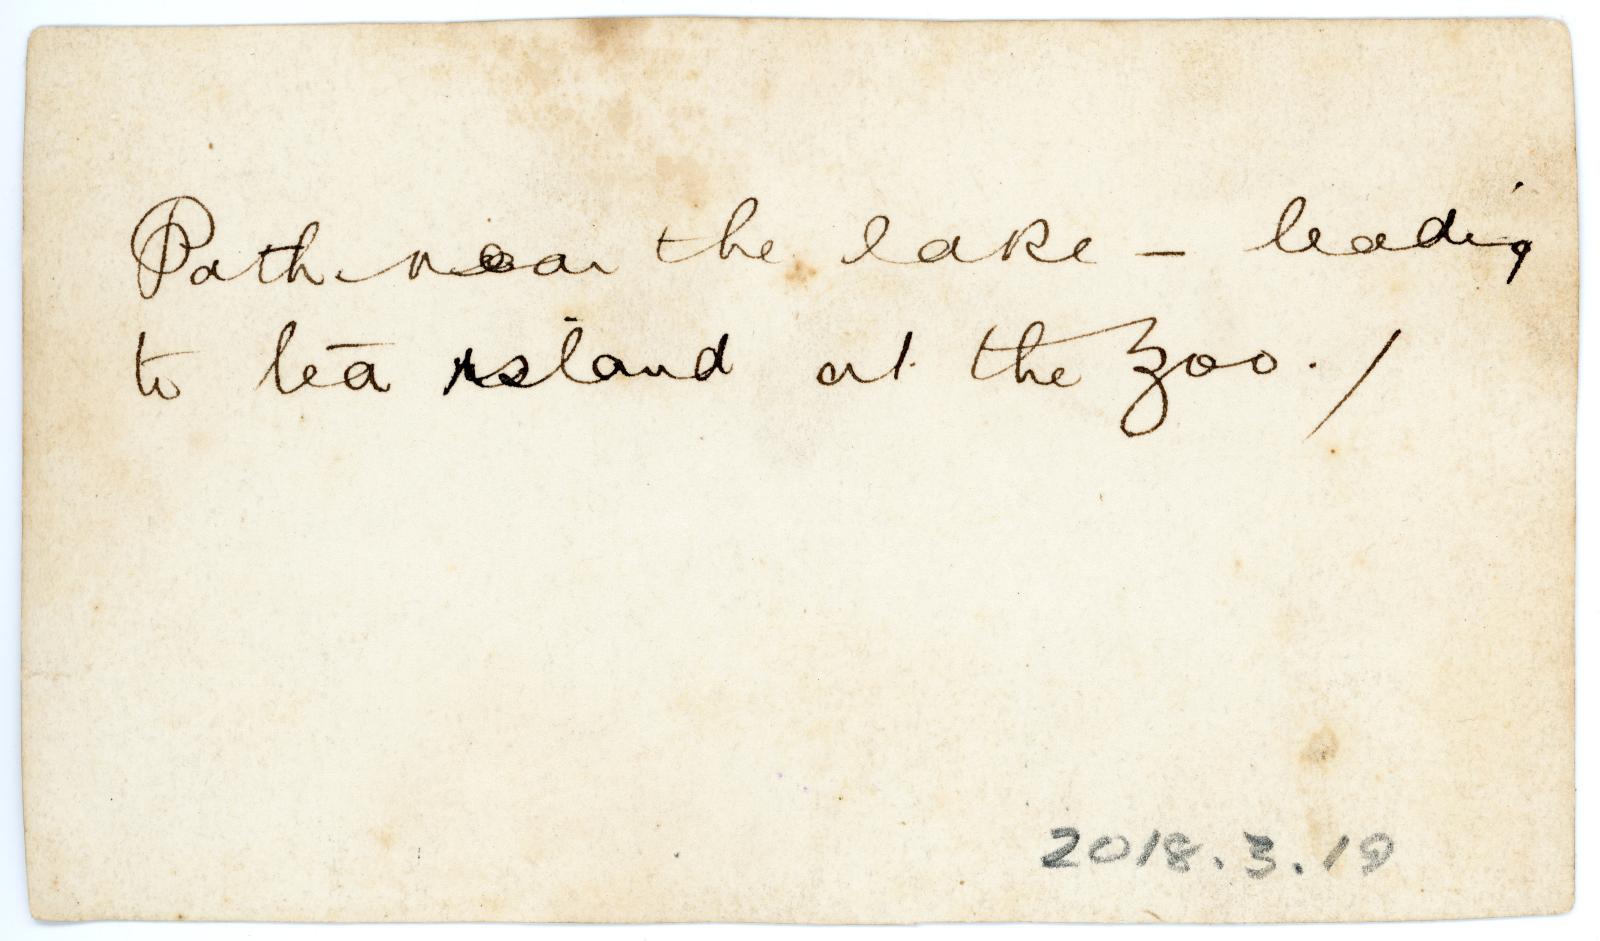 Path near the lake – leading
to tea island at the Zoo. /
2018.3.18